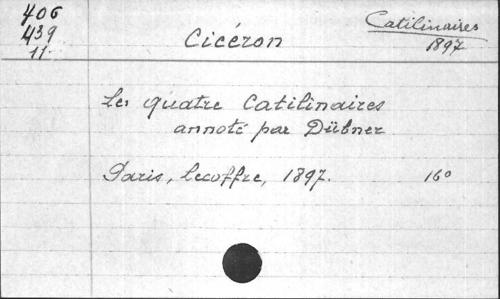 406
439
11
Catilinaires
1897
Cicéron
Les quatre Catilinaires
annoté par Dübner
Paris, Lecoffre, 1897. 16°